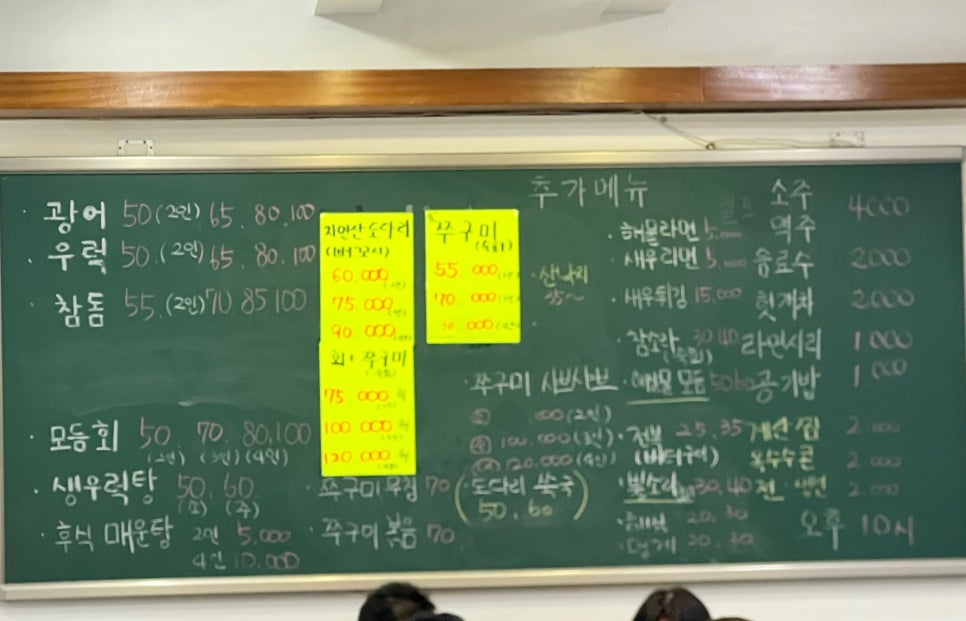 광어 50 (2인) 65. 80. 100
우럭 50. (2인) 65. 80. 100
참돔 55. (2인) 70 85 100
모듬회 50 70. 80. 100
(2인) (3인) (4인)
생우럭탕 50. 60.
(소) (주)
후식 매운탕 2인 5.000
4인 10.000
자연산 도다리
60.000
75.000
90.000
회+쭈구미
75.000
100.000
120.000
쭈구미
55.000
70.000
000
쭈구미 무침 70
쭈구미 볶음 70
추가메뉴
산낙지
쭈구미 샤브샤브
000 (2인)
100.000 (3인)
120.000 (4인)
(도다리 쑥국)
50. 60
해물라면 5.000
새우라면 5.000
새우튀김 15.000
참소라 30 40
해물모듬 50 60
전복 25. 35
(버터구이)
30. 40
20. 30
멍게 20. 30
소주 4000
맥주
음료수 2000
헛개차 2000
라면사리 1000
공기밥 1000
계란찜 2.000
옥수수콘 2.000
전. 생선 2.000
오후 10시